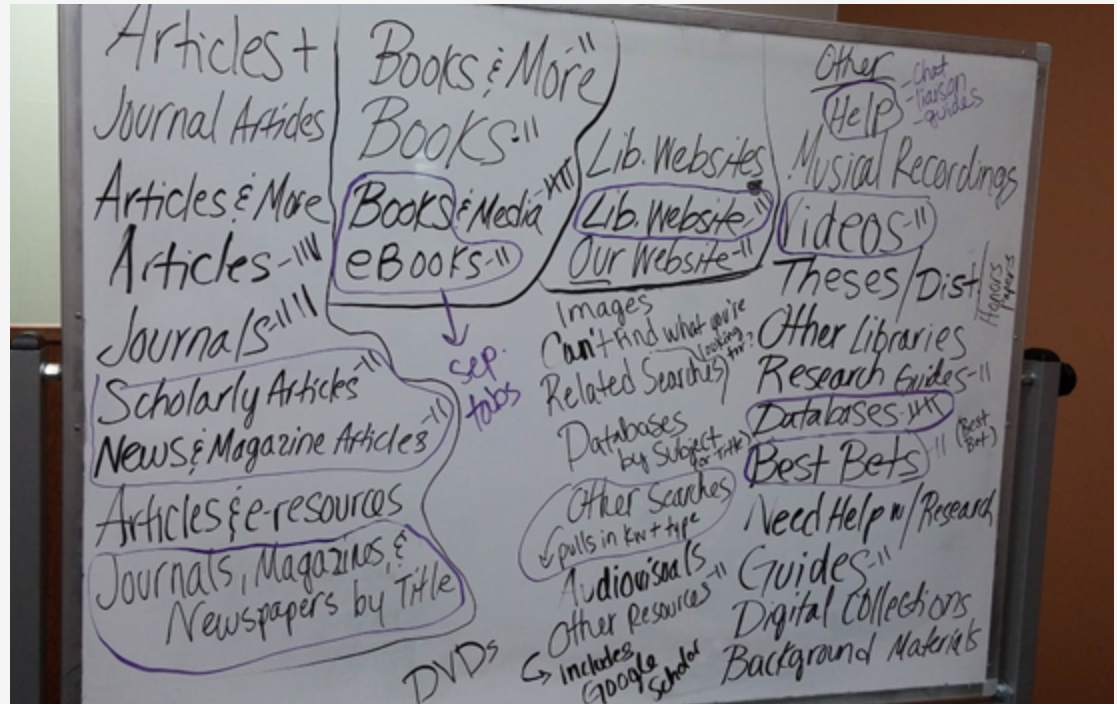 Articles +
Journal Articles
Articles & More
Articles - ||||
Journals - || ||
Scholarly Articles - ||
News & Magazine Articles - ||
Articles & e-resources
Journals, Magazines, &
Newspapers by Title
Books & More - ||
Books - ||
Books & Media -
eBooks - ||
sep.
tabs
Lib. Websites
Lib. Website - ||
Our Website - ||
Images
Can't Find what you're
looking
for?
Related Searches
Databases
by Subject
(or Title)
Other Searches
pulls in kw + type
Audiovisuals
Other Resources - ||
includes
Google
Scholar
DVDs
Other
Help
- Chat
- liaison
- guides
Musical Recordings
Videos - ||
Theses / Dist /
Honors
Papers
Other Libraries
Research Guides - ||
Databases -
Best Bets - ||
(Best
Bet)
Need Help w/ Research
Guides - ||
Digital Collections
Background Materials